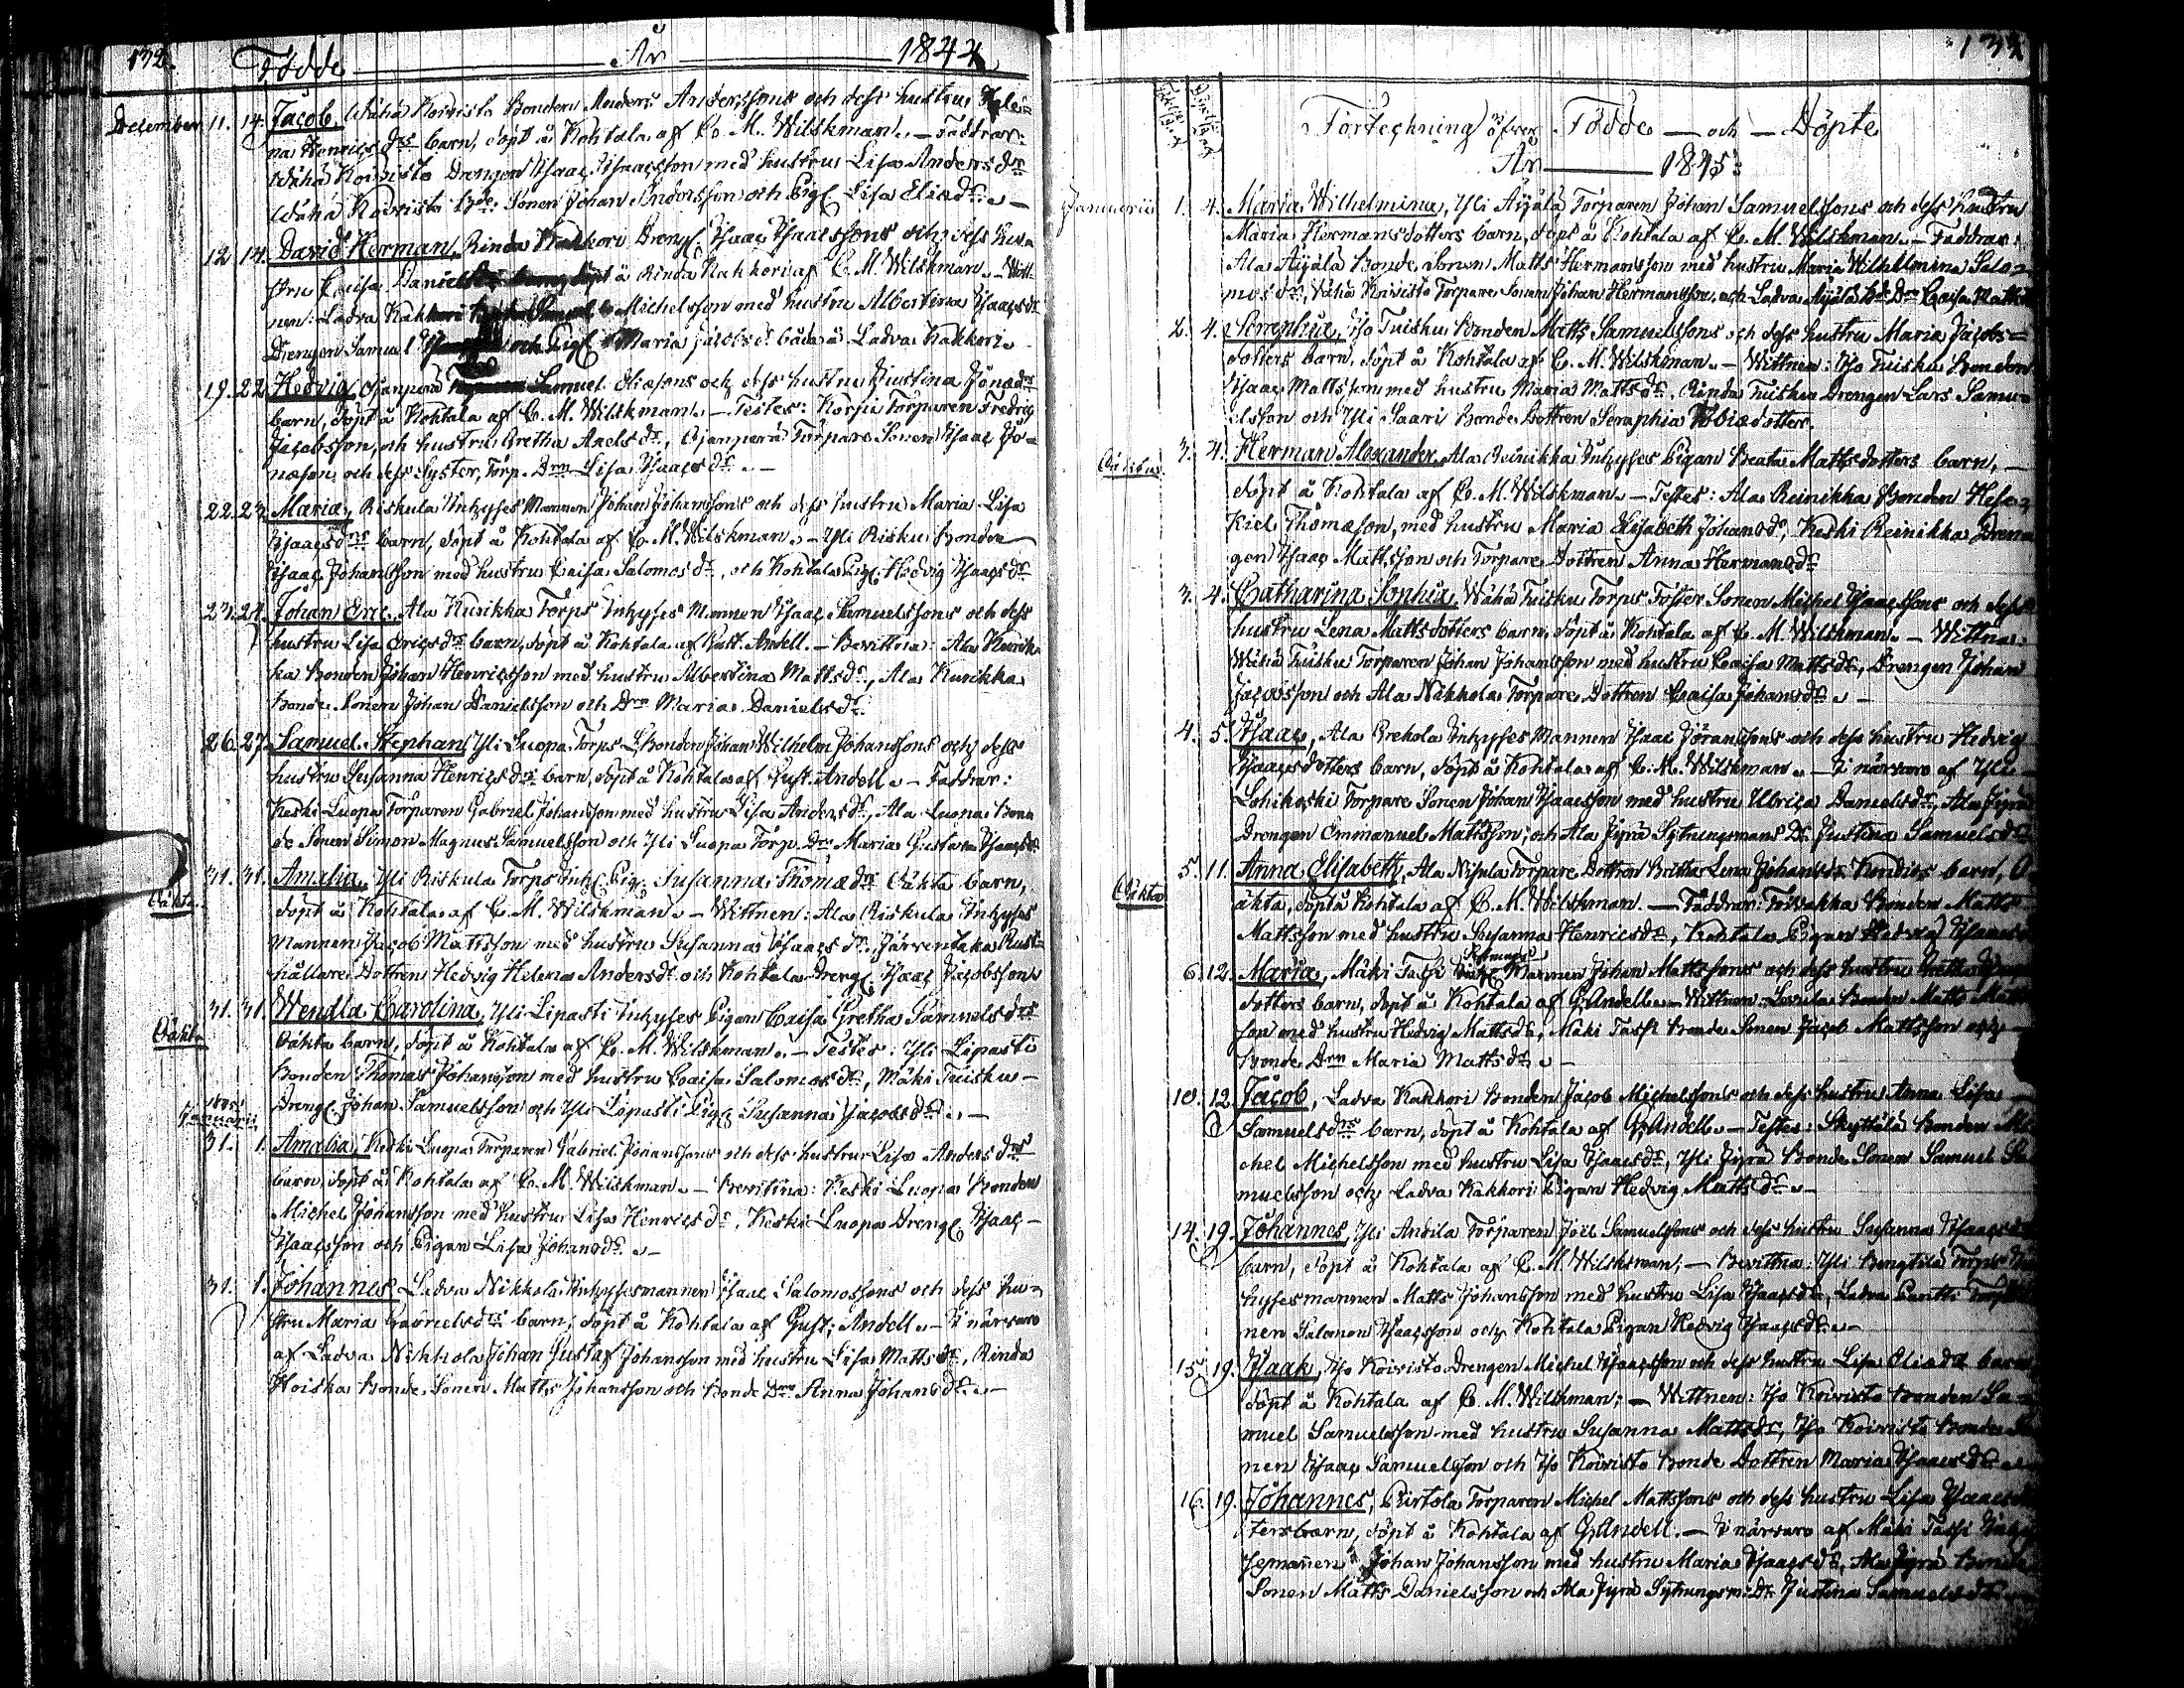 132. Födde År 1844
December 11. 14. Jacob, Wähä Koivisto Bonden Anders Anderssons och dess hustru Hele-
na Henrics drs barn, döpt å Kohtala af C. M. Wilskman. – Faddrar:
Wähä Koivisto Drengen Isaac Isaacsson med hustru Lisa Anders dr
Wähä Koivisto Bde: Sonen Johan Andersson och Pig. Lisa Elia dr. –
12. 14. David Herman, Rinda Kakkori Dreng. Isaac Isaacssons och dess hu-
stru Caisa Daniels döpt å Rinda Kakkori af C. M. Wilskman. – Witt-
nen: Ladva Kakkori Michelsson med hustru Albertina Isaacs dr
Drengen Samuel och Pig. Maria Jacobs dr båda å Ladva Kakkori
19. 22. Hedvig, Samuel Eliæsons och dess hustru Justina Jonæ drs
barn, döpt å Kohtala af C. M. Wilskman. – Testes: Korpi Torparen Fredric
Jacobsson, och hustru Gretha Axels dr, Torpare Sonen Isaac Jo-
næson och dess Syster, Torp. Drn Lisa Isaacs dr. –
22. 23. Maria, Riskula Inhyses Mannen Johan Johanssons och dess hustru Maria Lisa
Isaacs drs barn, döpt å Kohtala af C. M. Wilskman. – Yli Risku Bonden
Isaac Johansson med hustru Caisa Salomos dr, och Kohtala Pig. Hedvig Isaacs dr
23. 24. Johan Eric, Ala Kurikka Torps Inhyses Mannen Isaac Samuelssons och dess
hustru Lisa Erics drs barn, döpt å Kohtala af Gust. Andell. – Bevittna: Ala Kurik-
ka Bonden Johan Henricsson med hustru Albertina Matts dr, Ala Kurikka
Bonde Sonen Johan Danielsson och Drn Maria Daniels dr.
26. 27. Samuel Stephan, Yli Luopa Torps Bonden Johan Wilhelm Johanssons och dess
hustru Susanna Henrics drs barn, döpt å Kohtala af Gust. Andell. – Faddrar:
Keski Luopa Torparen Gabriel Johansson med hustru Lisa Anders dr, Ala Luopa Bon-
de Sonen Simon Magnus Samuelsson och Yli Luopa Torp. Drn Maria Gustava Isaacs dr
Oäkta. 31. 31. Amalia, Yli Riskula Torps Inh. Pig. Susanna Thomæ drs Oäkta barn,
döpt å Kohtala af C. M. Wilskman. – Wittnen: Ala Riskula Inhyses
Mannen Jacob Mattsson med hustru Susanna Isaacs dr, Järventaka Rust-
hållare Dottren Hedvig Helena Anders dr och Kohtala Dreng. Isaac Jacobsson
Oäkta 31. 31. Wendla Carolina, Yli Lipasti Inhyses Pigan Caisa Gretha Samuels drs
Oäkta barn, döpt å Kohtala af C. M. Wilskman. – Testes: Yli Lipasti
Bonden Thomas Johansson med hustru Caisa Salomos dr, Mäki Tuisku –
Dreng. Johan Samuelsson och Yli Lipasti Pig. Susanna Jacobs dr. –
1845 Januarii
31. 1. Amalia, Keski Luopa Torparen Gabriel Johanssons och dess hustru Lisa Anders drs
barn, döpt å Kohtala af C. M. Wilskman. – Bevittna: Keski Luopa Bonden
Michel Johansson med hustru Lisa Henrics dr, Keski Luopa Dreng. Isaac –
Isaacsson och Pigan Lisa Johans dr. –
31. 1. Johannes, Ladva Nikkola Inhysesmannen Isaac Salomossons och dess hu-
stru Maria Gabriels drs barn, döpt å Kohtala af Gust. Andell. – I närvaro
af Ladva Nikkola Johan Gustaf Johansson med hustru Lisa Matts dr, Rinda
Hoiska Bonde Sonen Matts Johansson och Bonde Drn Anna Johans dr. –
133
Förteckning öfver Födde – och – Döpte
År 1845:
Januarii 1. 4. Maria Wilhelmina, Yli Äijälä Torparen Johan Samuelssons och dess hustru
Maria Hermansdotters barn, döpt å Kohtala af C. M. Wilskman. – Faddrar:
Ala Äijälä Bonde Sonen Matts Hermansson med hustru Maria Wilhelmina Salo-
mos dr, Wähä Koivisto Torpare Sonen Johan Hermansson, och Ladva Äijälä Bde Drn Caisa
2. 4. Seraphia, Iso Tuisku Bonden Matts Samuelssons och dess hustru Maria Jacobs-
dotters barn, döpt å Kohtala af C. M. Wilskman. – Wittnen: Iso Tuisku Bonden
Isaac Mattsson med hustru Maria Matts dr, Rinda Tuisku Drengen Lars Samu-
elsson och Yli Saari Bonde Dottren Seraphia
Oäkta 3. 4. Herman Alexander, Ala Reinikka Inhyses Pigan Beata Mattsdotters barn, –
döpt å Kohtala af C. M. Wilskman. – Testes: Ala Reinikka Bonden Hese-
kiel Thomæson, med hustru Maria Elisabeth Johans dr, Keski Reinikka Dren-
gen Isaac Mattsson och Torpare Dottren Anna Hermans dr
3. 4. Catharina Sophia, Wähä Tuisku Torps Foster Sonen Michel Isaacssons och dess
hustru Lena Mattsdotters barn, döpt å Kohtala af C. M. Wilskman. – Wittna:
Wähä Tuisku Torparen Johan Johansson med hustru Caisa Matts dr, Drengen Johan
Jacobsson och Ala Nikkola Torpare Dottren Caisa Johans dr. –
4. 5. Isaac, Ala Inhyses Mannen Isaac Jöranssons och dess hustru Hedvig
Isaacsdotters barn, döpt å Kohtala af C. M. Wilskman. – I närvaro af Yli –
Lohikoski Torpare Sonen Johan Isaacsson med hustru Ulrica Daniels dr, Ala Jyrä
Drengen Emmanuel Mattsson, och Ala Jyrä Sytningsmans Dr. Justina Samuels dr
Oäkta 5. 11. Anna Elisabeth, Ala Nisula Torpare Dottren Britha Lena Johans dr barn, O-
äkta, döpt å Kohtala af C. M. Wilskman. – Faddrar: Bonden Matts
Mattsson med hustru Susanna Henrics dr, Kohtala Pigan Hedvig Isaacs
6. 12. Maria, Mäki Tassi Mannen Johan Mattssons och dess hustru
dotters barn, döpt å Kohtala af G. Andell. – Wittnen: Bonden Matts
son med hustru Hedvig Matts dr, Mäki Tassi Bonde Sonen Jacob Mattsson och –
Bonde Drn Maria Matts dr. –
10. 12. Jacob, Ladva Kakkori Bonden Jacob Michelssons och dess hustru Anna Lisa –
Samuels drs barn, döpt å Kohtala af G. Andell. – Testes: Skyttälä Bonden Mi-
chel Michelsson med hustru Lisa Isaacs dr, Yli Jyrä Bonde Sonen Samuel Sa-
muelsson och Ladva Kakkori Pigan Hedvig Matts dr. –
14. 19. Johannes, Yli Andila Torparen Joel Samuelssons och dess hustru Susanna Isaacs
barn, döpt å Kohtala af C. M. Wilskman, – Bevittna: Yli Bengtilä Torps In-
hysesmannen Matts Johansson med hustru Lisa Isaacs dr, Ladva Pantti
nen Salomon Isaacsson och Kohtala Pigan Hedvig Isaacs dr. –
15. 19. Isaak, Iso Koivisto Drengen Michel Isaacsson och dess hustru Lisa Elia dr barn
döpt å Kohtala af C. M. Wilskman; – Wittnen: Iso Koivisto Bonden Sa-
muel Samuelsson med hustru Susanna Matts dr, Iso Koivisto Bonde So-
nen Isaac Samuelsson och Iso Koivisto Bonde Dottren Maria Isaacs dr.
16. 19. Johannes, Pirtola Torparen Michel Mattssons och dess hustru Lisa Isaacs
ters barn, döpt å Kohtala af G. Andell. – I närvaro af Mäki Tassi Inhy-
sesmannen Johan Johansson med hustru Maria Isaacs dr, Ala Jyrä Bonde
Sonen Matts Danielsson och Ala Jyrä Sytningsm: Dr. Justina Samuels dr